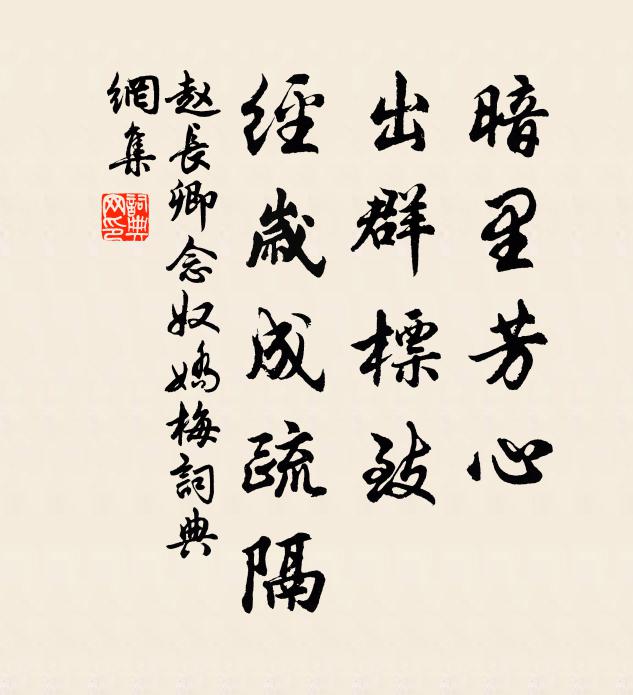 暗里芳心
出群標致
經歲成疏隔
赵長卿念奴嬌梅詞典
網集
詞典
网印